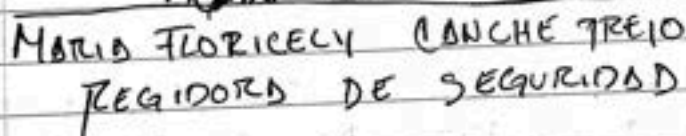 MARIA FLORICELY CANCHE TREJO
REGIDORA DE SEGURIDAD